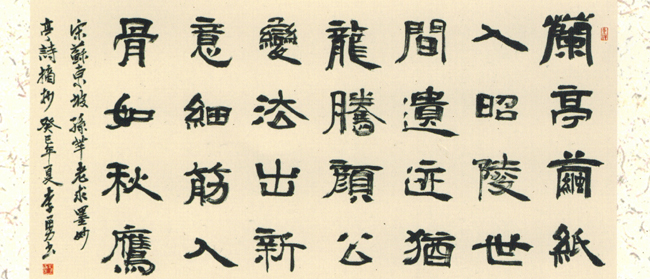 蘭亭繭紙
入昭陵世
間遺迹猶
龍騰顏公
變法出新
意細筋入
骨如秋鷹
宋蘇東坡孫莘老求墨妙
亭詩摘抄癸巳年夏李勇書